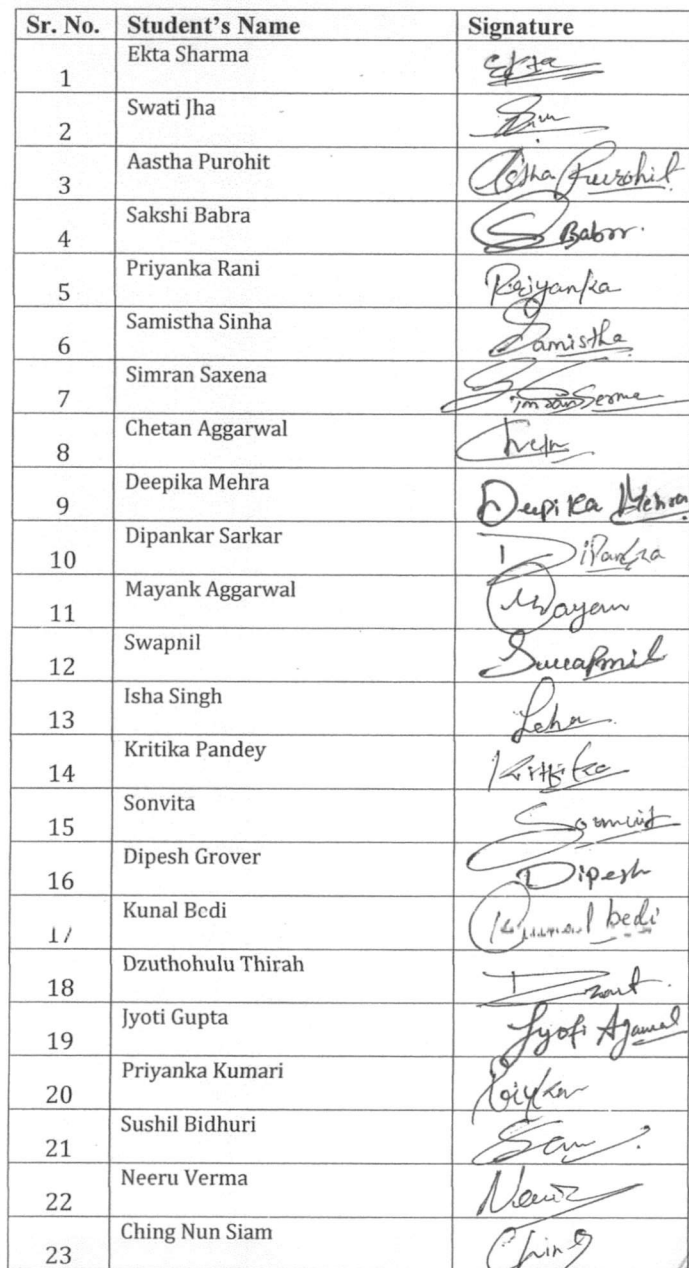 Sr. No. Student's Name Signature
1 Ekta Sharma Ekta
2 Swati Jha
3 Aastha Purohit Astha Purohit
4 Sakshi Babra S Babra
5 Priyanka Rani Priyanka
6 Samistha Sinha Samistha
7 Simran Saxena Simran
8 Chetan Aggarwal
9 Deepika Mehra Deepika Mehra
10 Dipankar Sarkar
11 Mayank Aggarwal
12 Swapnil Swapnil
13 Isha Singh Isha
14 Kritika Pandey Kritika
15 Sonvita
16 Dipesh Grover Dipesh
17 Kunal Bedi Kunal bedi
18 Dzuthohulu Thirah
19 Jyoti Gupta Jyoti Agarwal
20 Priyanka Kumari
21 Sushil Bidhuri
22 Neeru Verma
23 Ching Nun Siam Ching